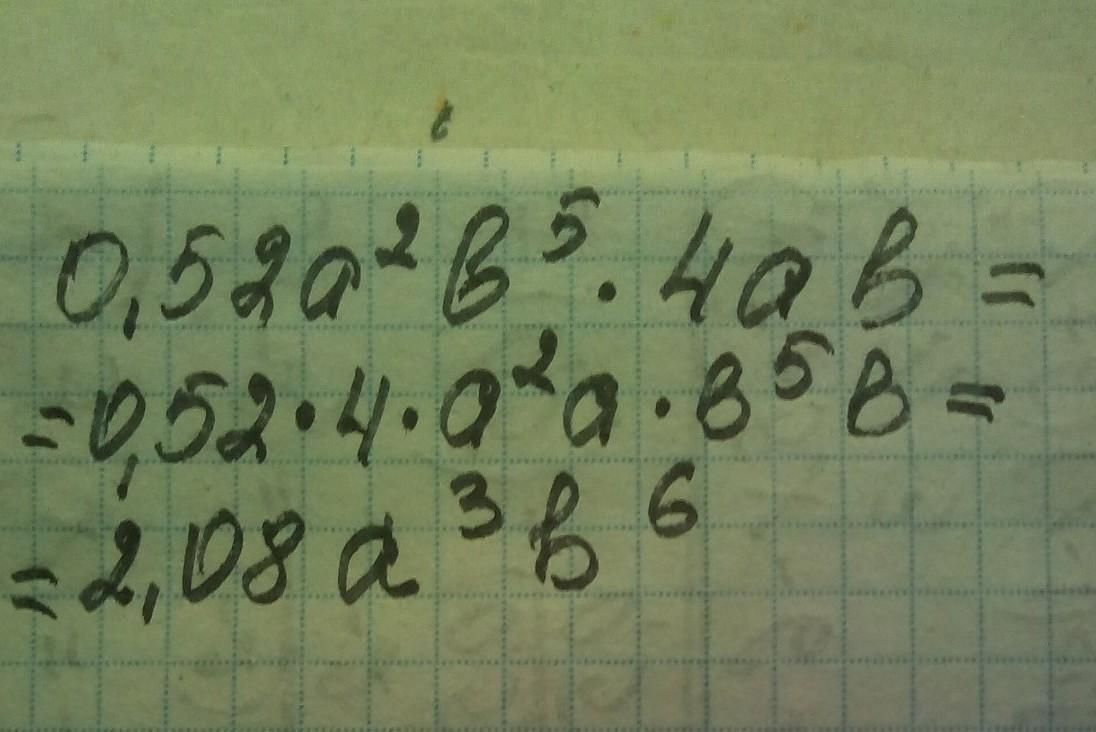 0,52a²b⁵·4ab=
=0,52·4·a²a·b⁵b=
=2,08a³b⁶